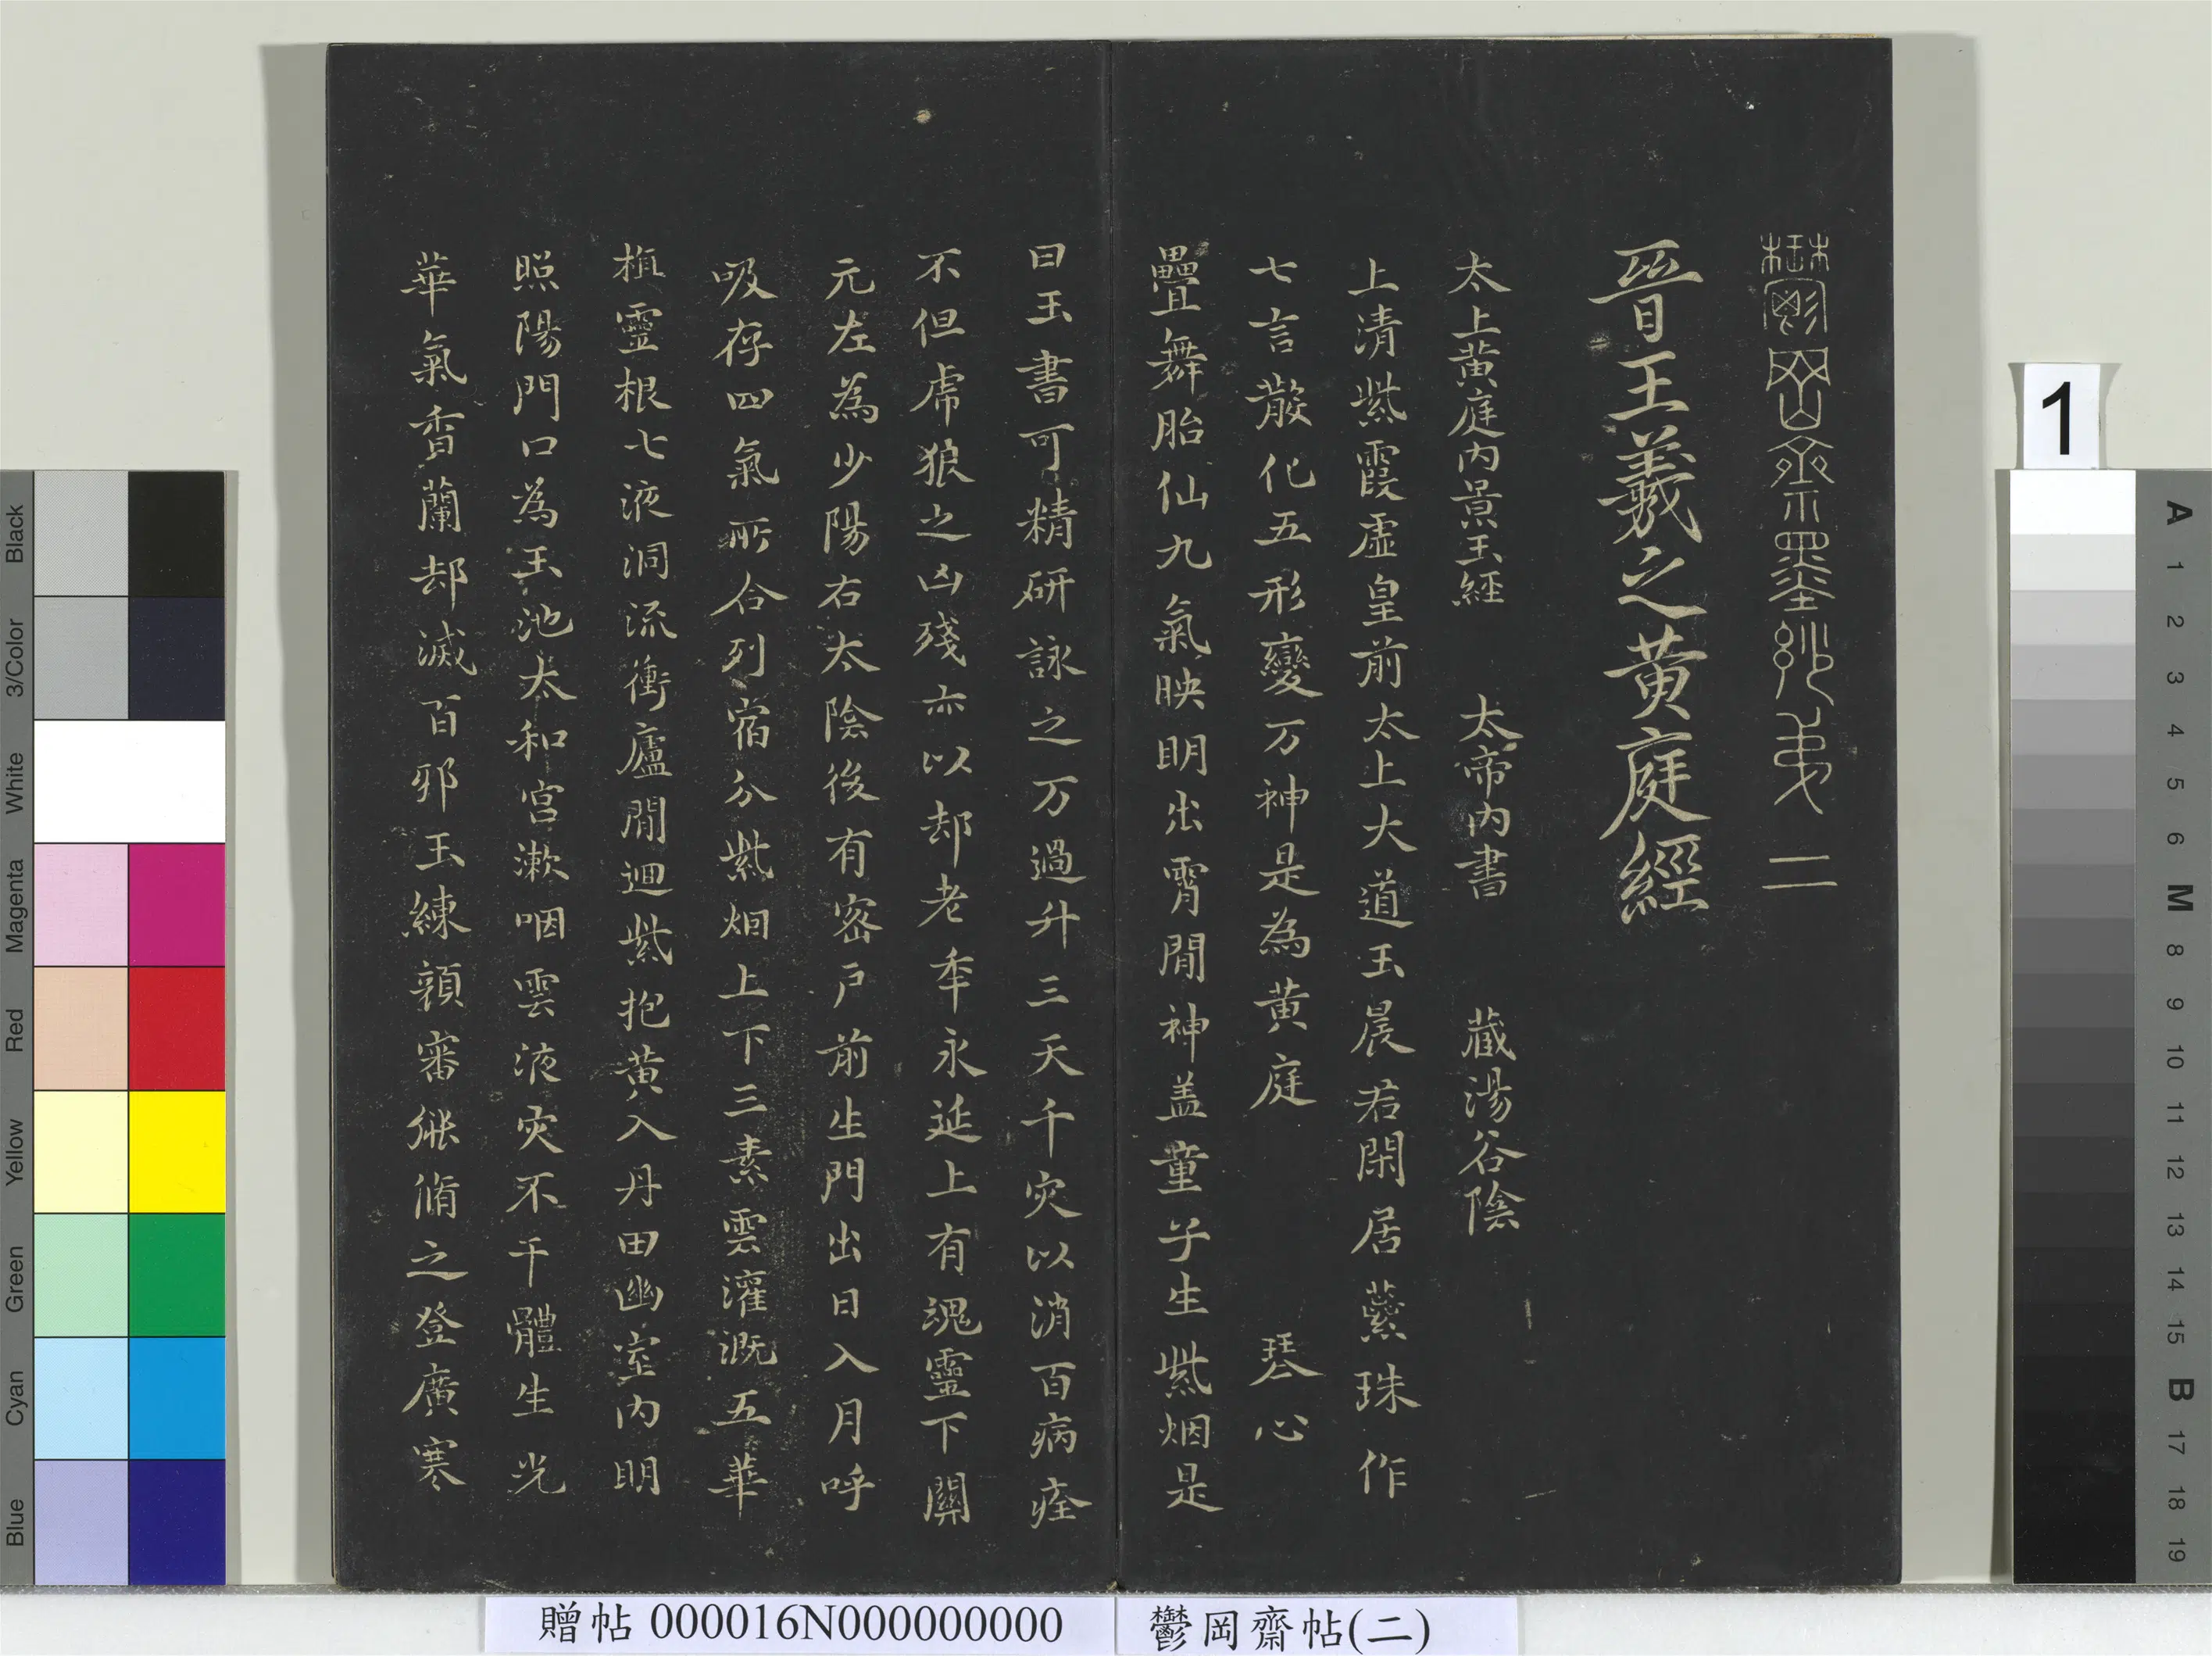 鬱岡齋墨妙弟二
晉王羲之黄庭經
太上黄庭内景玉經 太帝内書 藏湯谷陰
上清紫霞虛皇前太上大道玉晨君閑居蘂珠作
七言散化五形變万神是為黄庭 琴心
疊舞胎仙九氣映明出霄間神盖童子生紫烟是
曰玉書可精研詠之万過升三天千灾以消百病痊
不但虎狼之凶殘亦以却老年永延上有魂靈下關
元左為少陽右太陰後有密户前生門出日入月呼
吸存四氣所合列宿分紫烟上下三素雲灌溉五華
植靈根七液洞流衝廬間迴紫抱黄入丹田幽室内明
照陽門口為玉池太和宫漱咽雲液灾不干體生光
華氣香蘭却滅百邪玉練顔審能脩之登廣寒
贈帖 000016N000000000
鬱岡齋帖(二)
1
Black
3/Color
White
Magenta
Red
Yellow
Green
Cyan
Blue
A
1
2
3
4
5
6
M
8
9
10
11
12
13
14
15
B
17
18
19